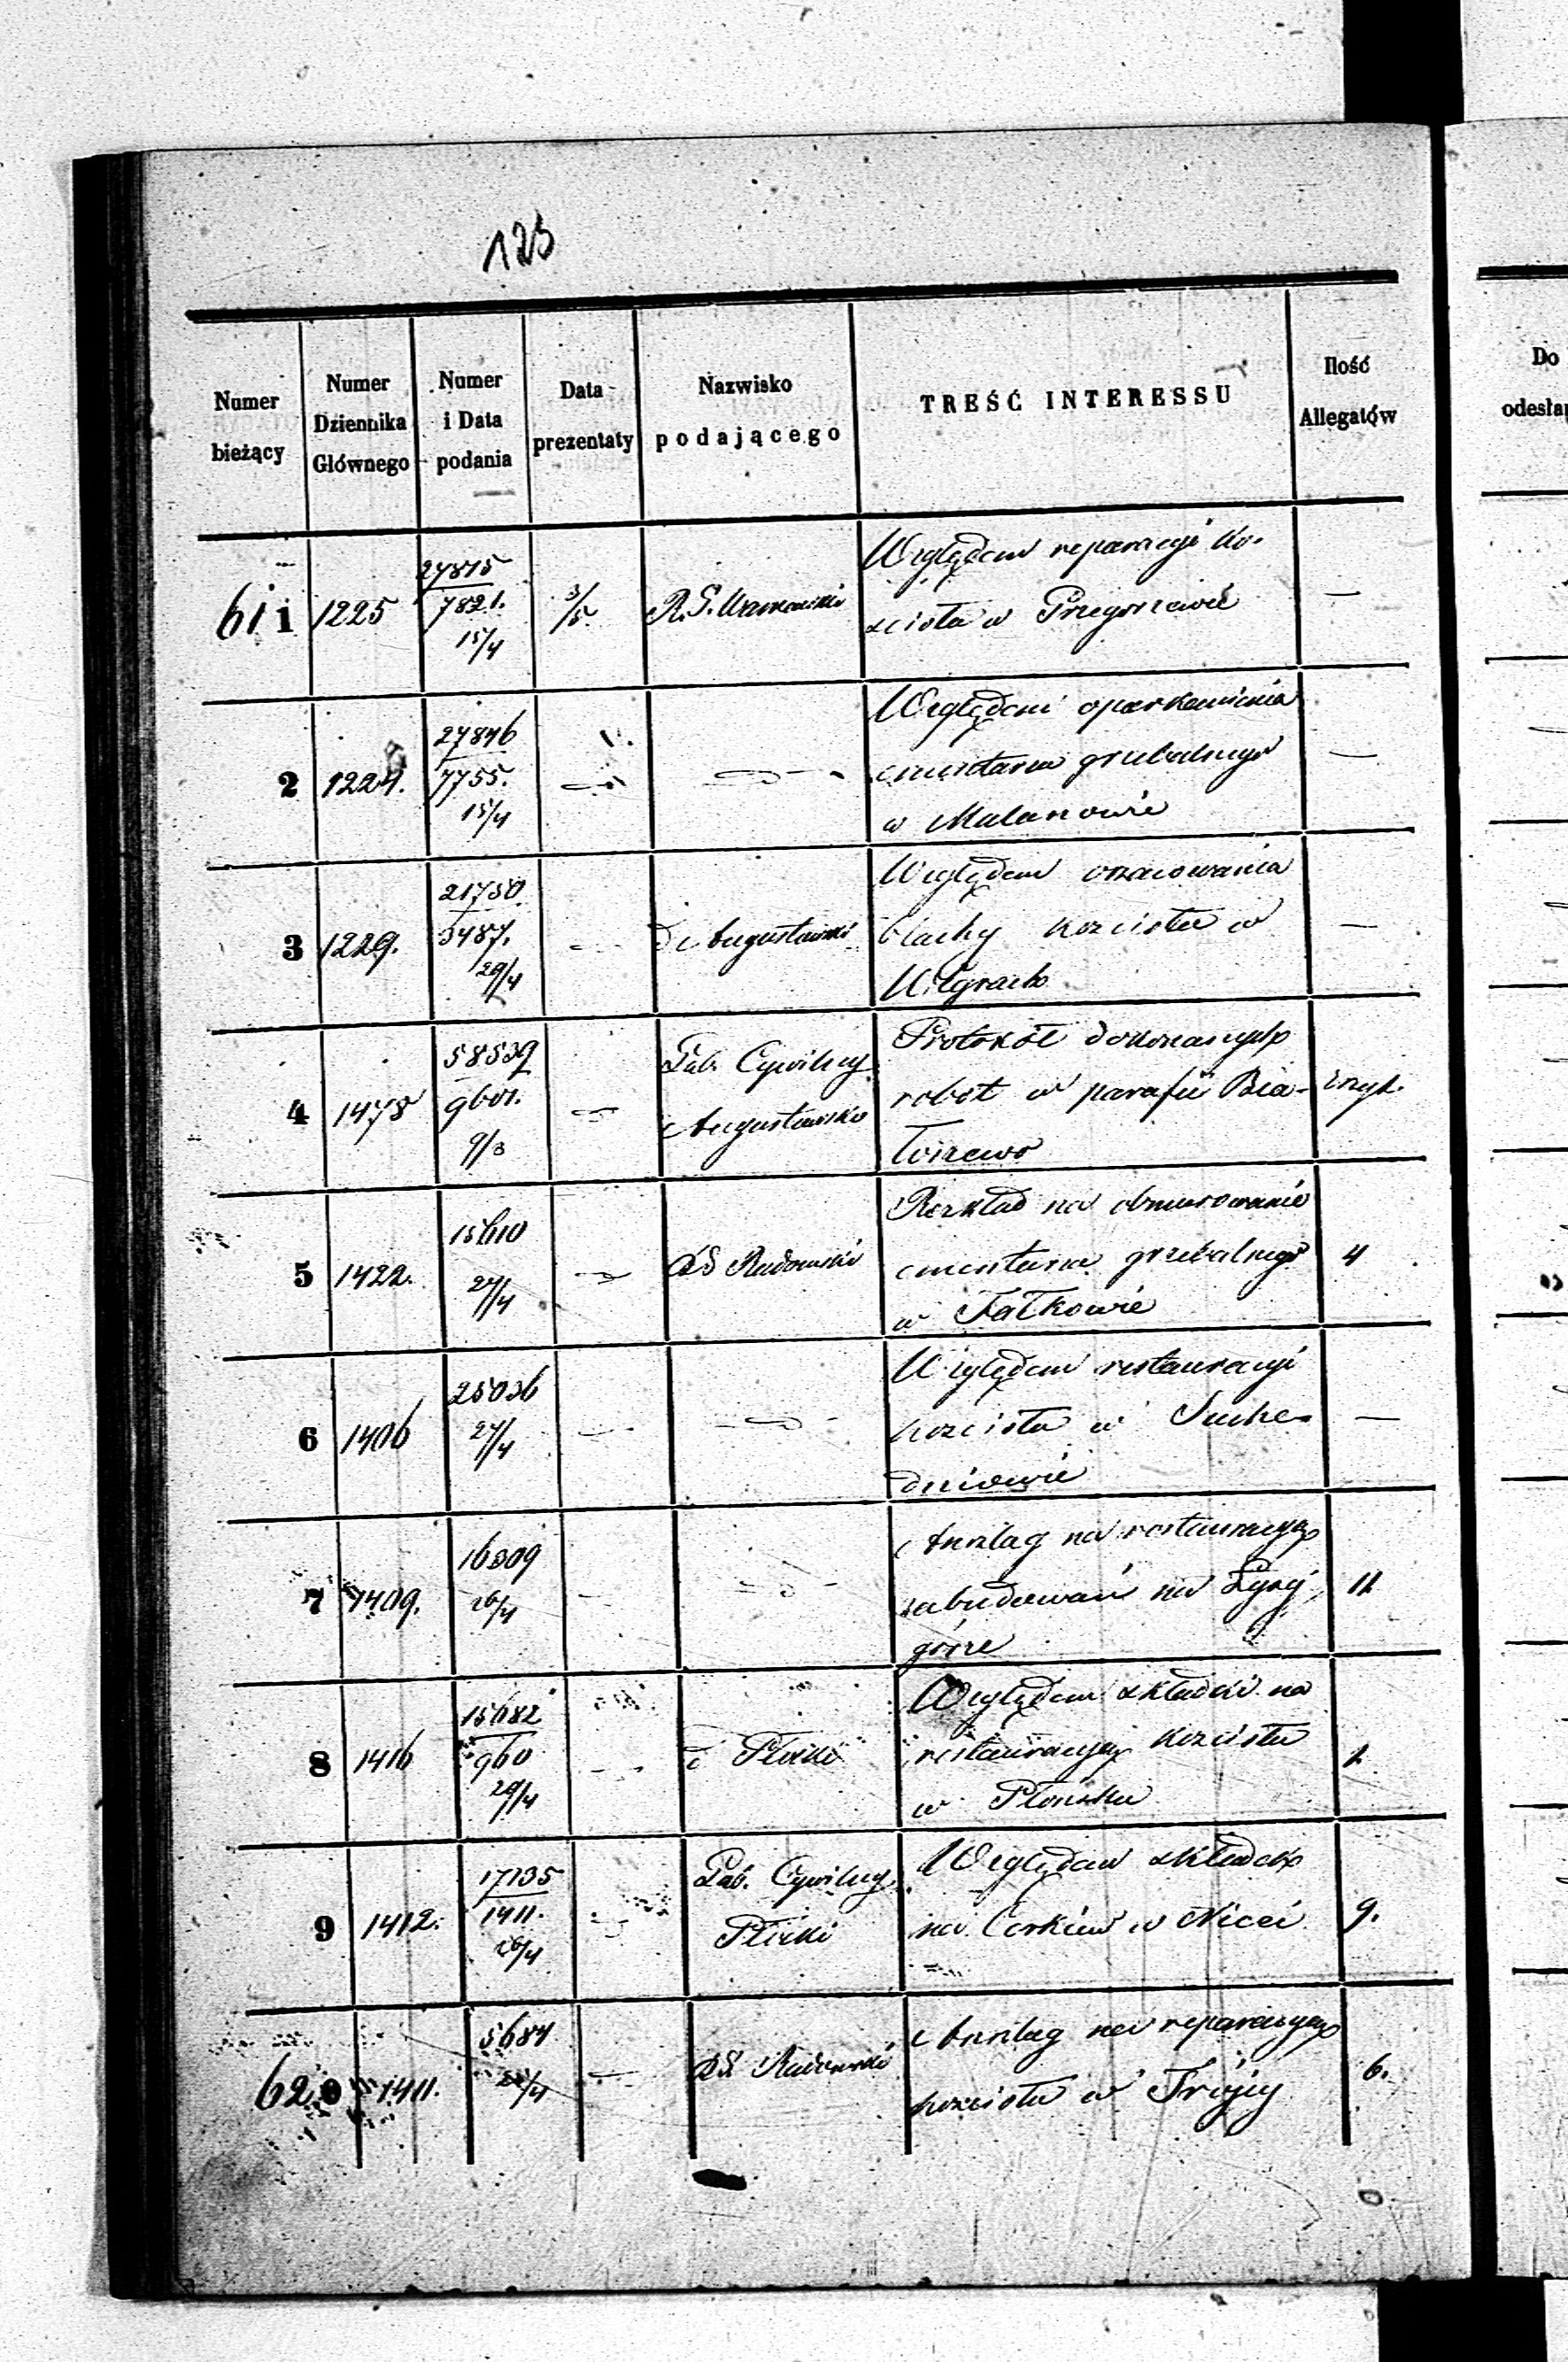 123
Numer bieżący
Numer Dziennika Głównego
Numer i Data podania
Data prezentaty
Nazwisko podającego
TREŚĆ INTERESSU
Ilość Allegatów
Do
611
1225
27815
7821.
15/4
3/5
R. G. Warszawski
Względem reparacyi Ko-
ścioła w
—
2
1224.
27846
7755.
15/4
Względem oparkanienia
cmentarza grzebalnego
w Malanowie
—
3
1229.
21750.
5487.
29/4
d Augustowski
Względem
blachy kościoła w
Wigrach
—
4
1478
58539
9601.
9/3
Gub. Cywilny
Augustowski
Protokół dokonanych
robot w parafii Bia-
łoszewo
5
1422.
15610
27/4
RG Radomski
Rozkład na obmurowanie
cmentarza grzebalnego
w Fałkowie
4
6
1406
25036
27/4
Względem restauracyi
kościoła w Suche-
dniowie
—
7
1409.
16309
26/4
Anszlag na restauracyę
zabudowań na Łysej
górze
11
8
1416
15682
960
29/4
d Płocki
Względem składki na
restauracyę kościoła
w Płońsku
9
1412.
17135
1411.
26/4
Gub. Cywilny
Płocki
Względem składek
na Cerkiew w Nicei
9.
620
1411.
5684
RG Radomski
Anszlag na reparacyę
kościoła w Trójcy
6.